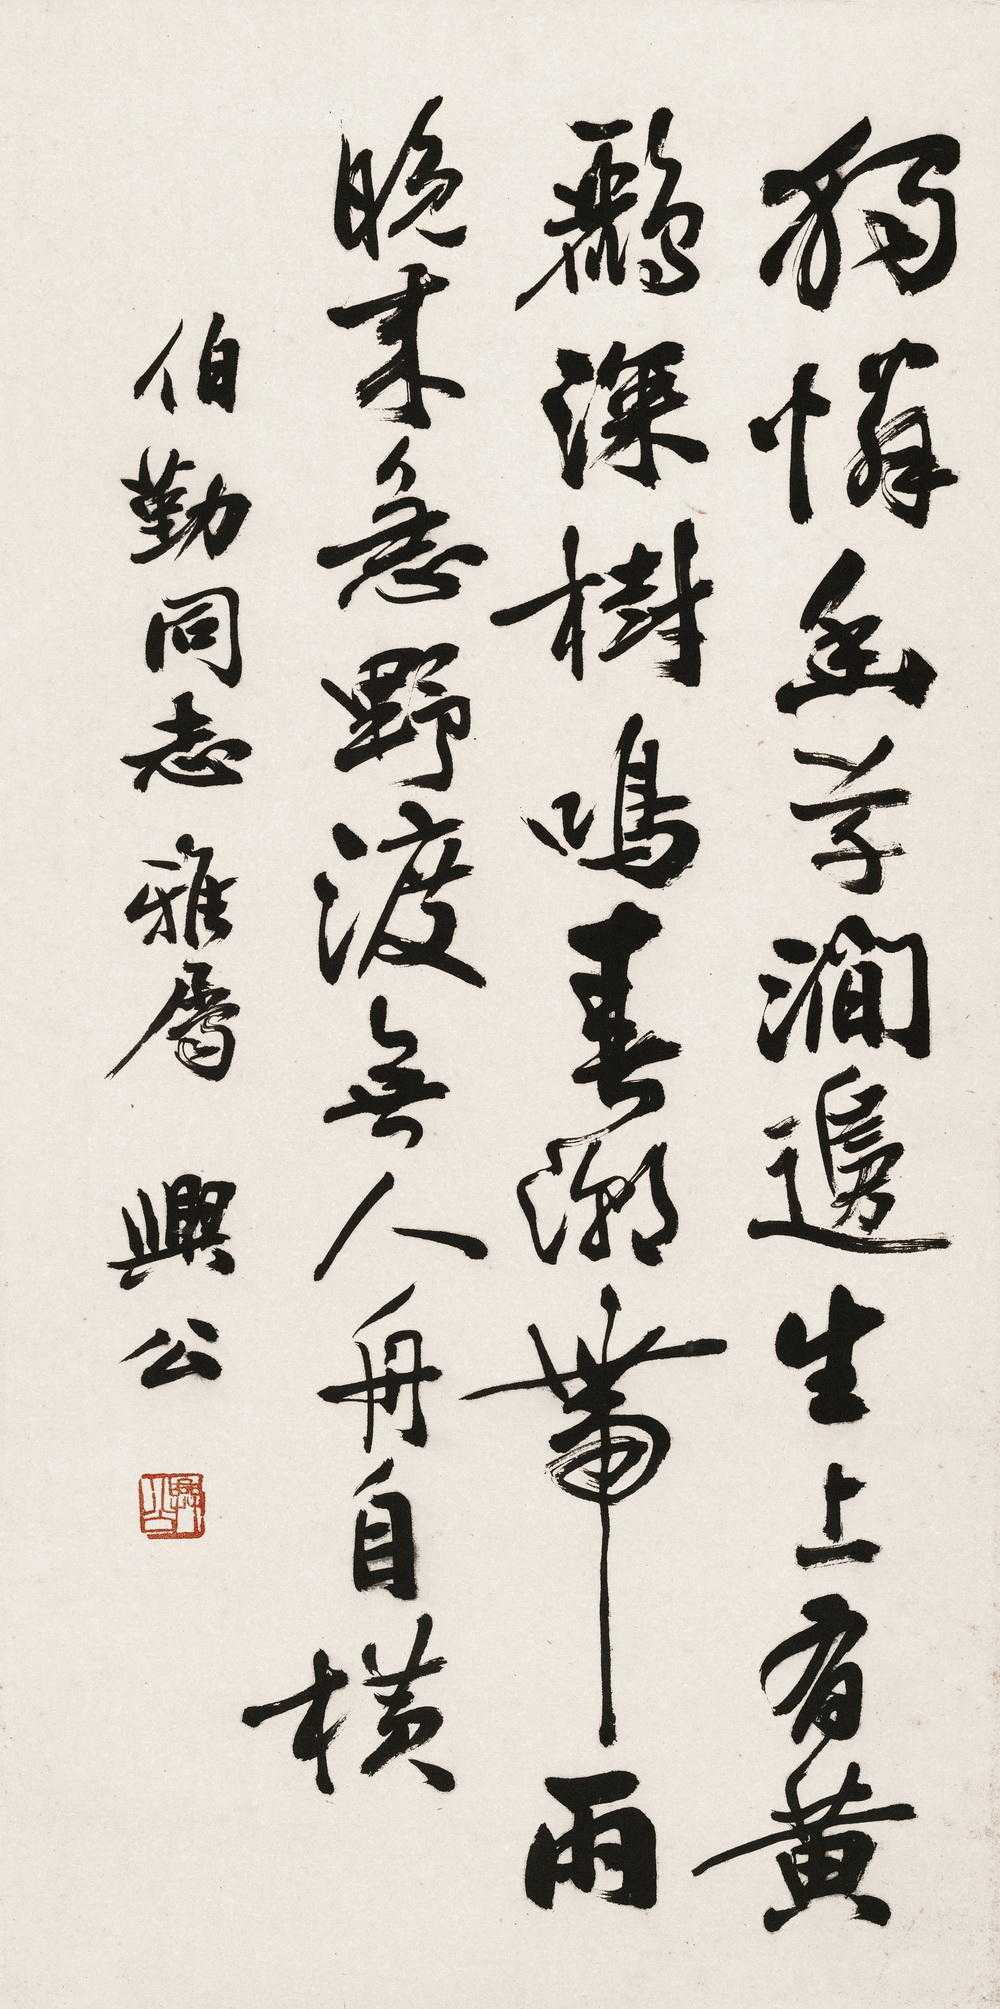 獨憐幽草澗邊生上有黃
鸝深樹鳴春潮帶雨
晚來急野渡無人舟自橫
伯勤同志雅屬 興公
興公